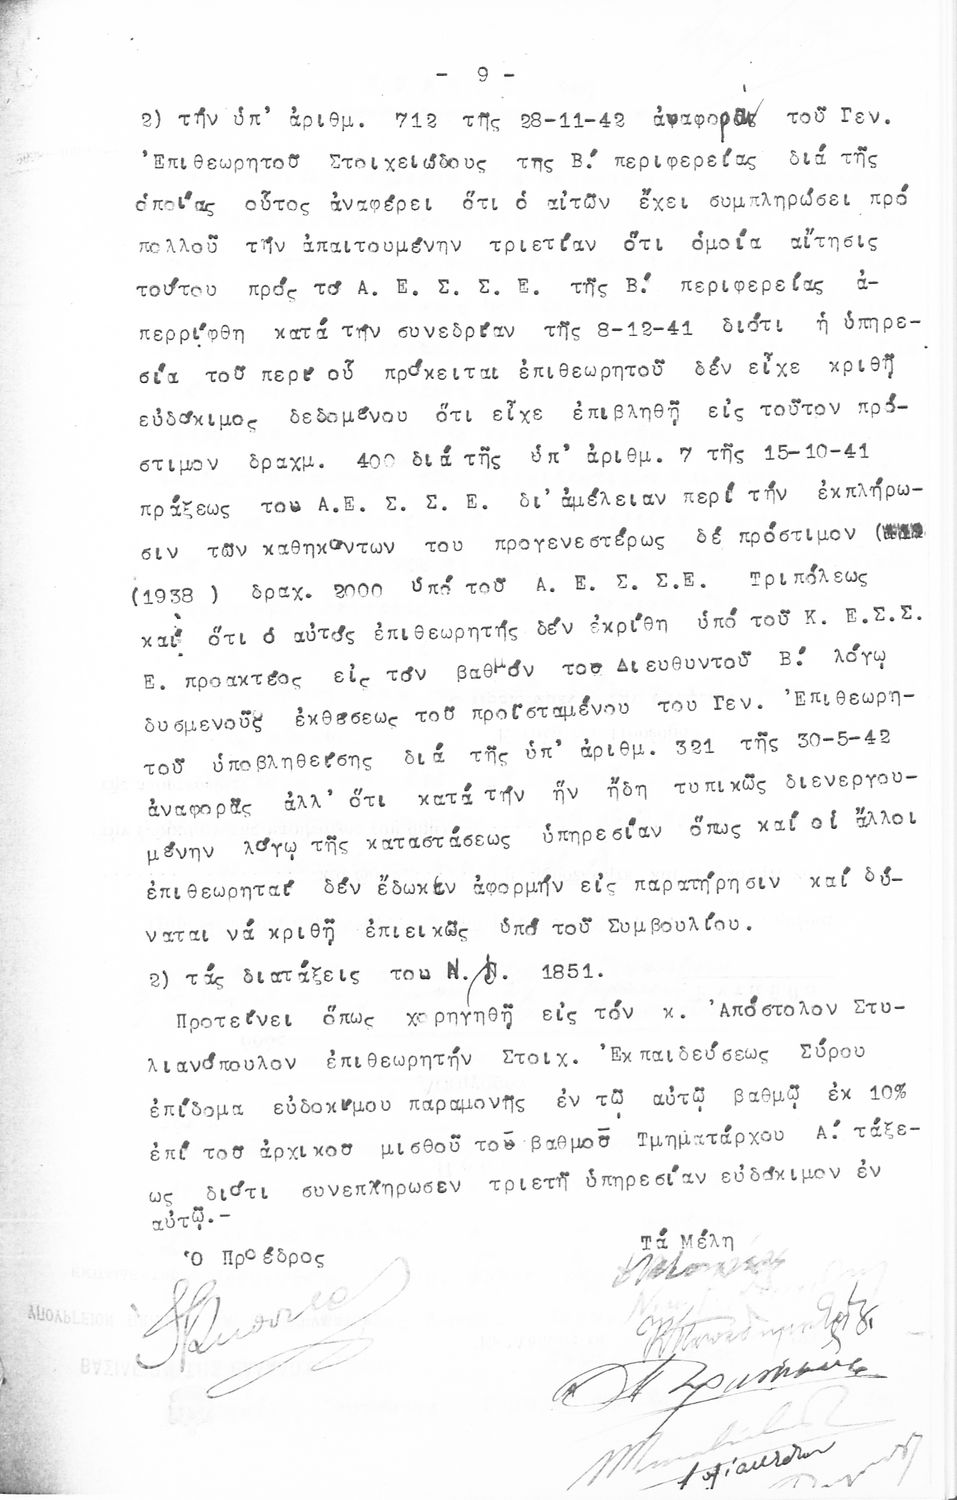 - 9 -
2) τήν ὑπ' ἀριθμ. 712 τῆς 28-11-42 ἀναφορᾶς τοῦ Γεν.
Ἐπιθεωρητοῦ Στοιχειώδους της Β.' περιφερείας διά τῆς
ὁποίας οὗτος ἀναφέρει ὅτι ὁ αἰτῶν ἔχει συμπληρώσει πρό
πολλοῦ τήν ἀπαιτουμένην τριετίαν ὅτι ὁμοία αἴτησις
τούτου πρός τό Α. Ε. Σ. Σ. Ε. τῆς Β.' περιφερείας ἀ-
περρίφθη κατά τήν συνεδρίαν τῆς 8-12-41 διότι ἡ ὑπηρε-
σία τοῦ περί οὗ πρόκειται ἐπιθεωρητοῦ δέν εἶχε κριθῆ
εὐδόκιμος δεδομένου ὅτι εἶχε ἐπιβληθῆ εἰς τοῦτον πρό-
στιμον δραχμ. 400 διά τῆς ὑπ' ἀριθμ. 7 τῆς 15-10-41
πράξεως του Α.Ε. Σ. Σ. Ε. δι' ἀμέλειαν περί τήν ἐκπλήρω-
σιν τῶν καθηκόντων του προγενεστέρως δέ πρόστιμον (
(1938 ) δραχ. 2000 ὑπό τοῦ Α. Ε. Σ. Σ.Ε. Τριπόλεως
καί ὅτι ὁ αὐτός ἐπιθεωρητής δέν ἐκρίθη ὑπό τοῦ Κ. Ε.Σ.Σ.
Ε. προακτέος εἰς τόν βαθμόν του Διευθυντοῦ Β.' λόγῳ
δυσμενοῦς ἐκθέσεως τοῦ προϊσταμένου του Γεν. Ἐπιθεωρη-
τοῦ ὑποβληθείσης διά τῆς ὑπ' ἀριθμ. 321 τῆς 30-5-42
ἀναφορᾶς ἀλλ' ὅτι κατά τήν ἥν ἤδη τυπικῶς διενεργου-
μένην λόγῳ τῆς καταστάσεως ὑπηρεσίαν ὅπως καί οἱ ἄλλοι
ἐπιθεωρηταί δέν ἔδωκεν ἀφορμήν εἰς παρατήρησιν καί δύ-
ναται νά κριθῆ ἐπιεικῶς ὑπό τοῦ Συμβουλίου.
2) τάς διατάξεις του Ν. Δ. 1851.
Προτείνει ὅπως χορηγηθῆ εἰς τόν κ. Ἀπόστολον Στυ-
λιανόπουλον ἐπιθεωρητήν Στοιχ. Ἐκπαιδεύσεως Σύρου
ἐπίδομα εὐδοκίμου παραμονῆς ἐν τῷ αὐτῷ βαθμῷ ἐκ 10%
ἐπί του ἀρχικοῦ μισθοῦ τοῦ βαθμοῦ Τμηματάρχου Α.' τάξε-
ως διότι συνεπλήρωσεν τριετῆ ὑπηρεσίαν εὐδόκιμον ἐν
αὐτῷ.-
Ὁ Πρόεδρος
Τά Μέλη